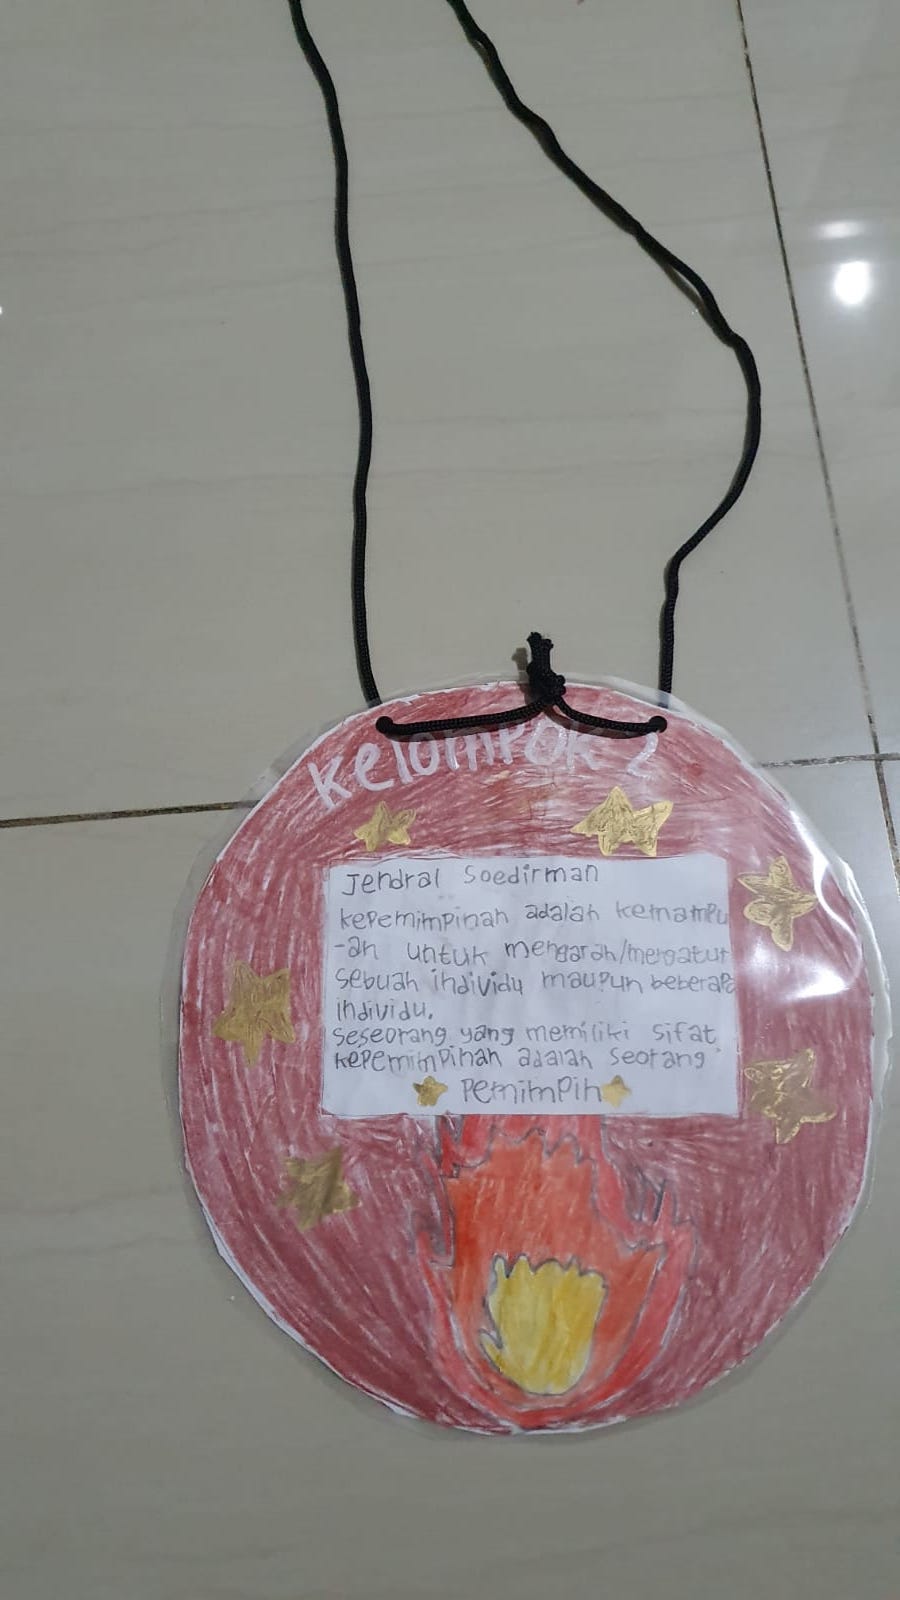 Kelompok 2
Jendral Soedirman
kepemimpinan adalah kemampu
-an untuk mengarah/mengatur
sebuah individu maupun beberapa
individu.
seseorang yang memiliki sifat
kepemimpinan adalah seorang
Pemimpin